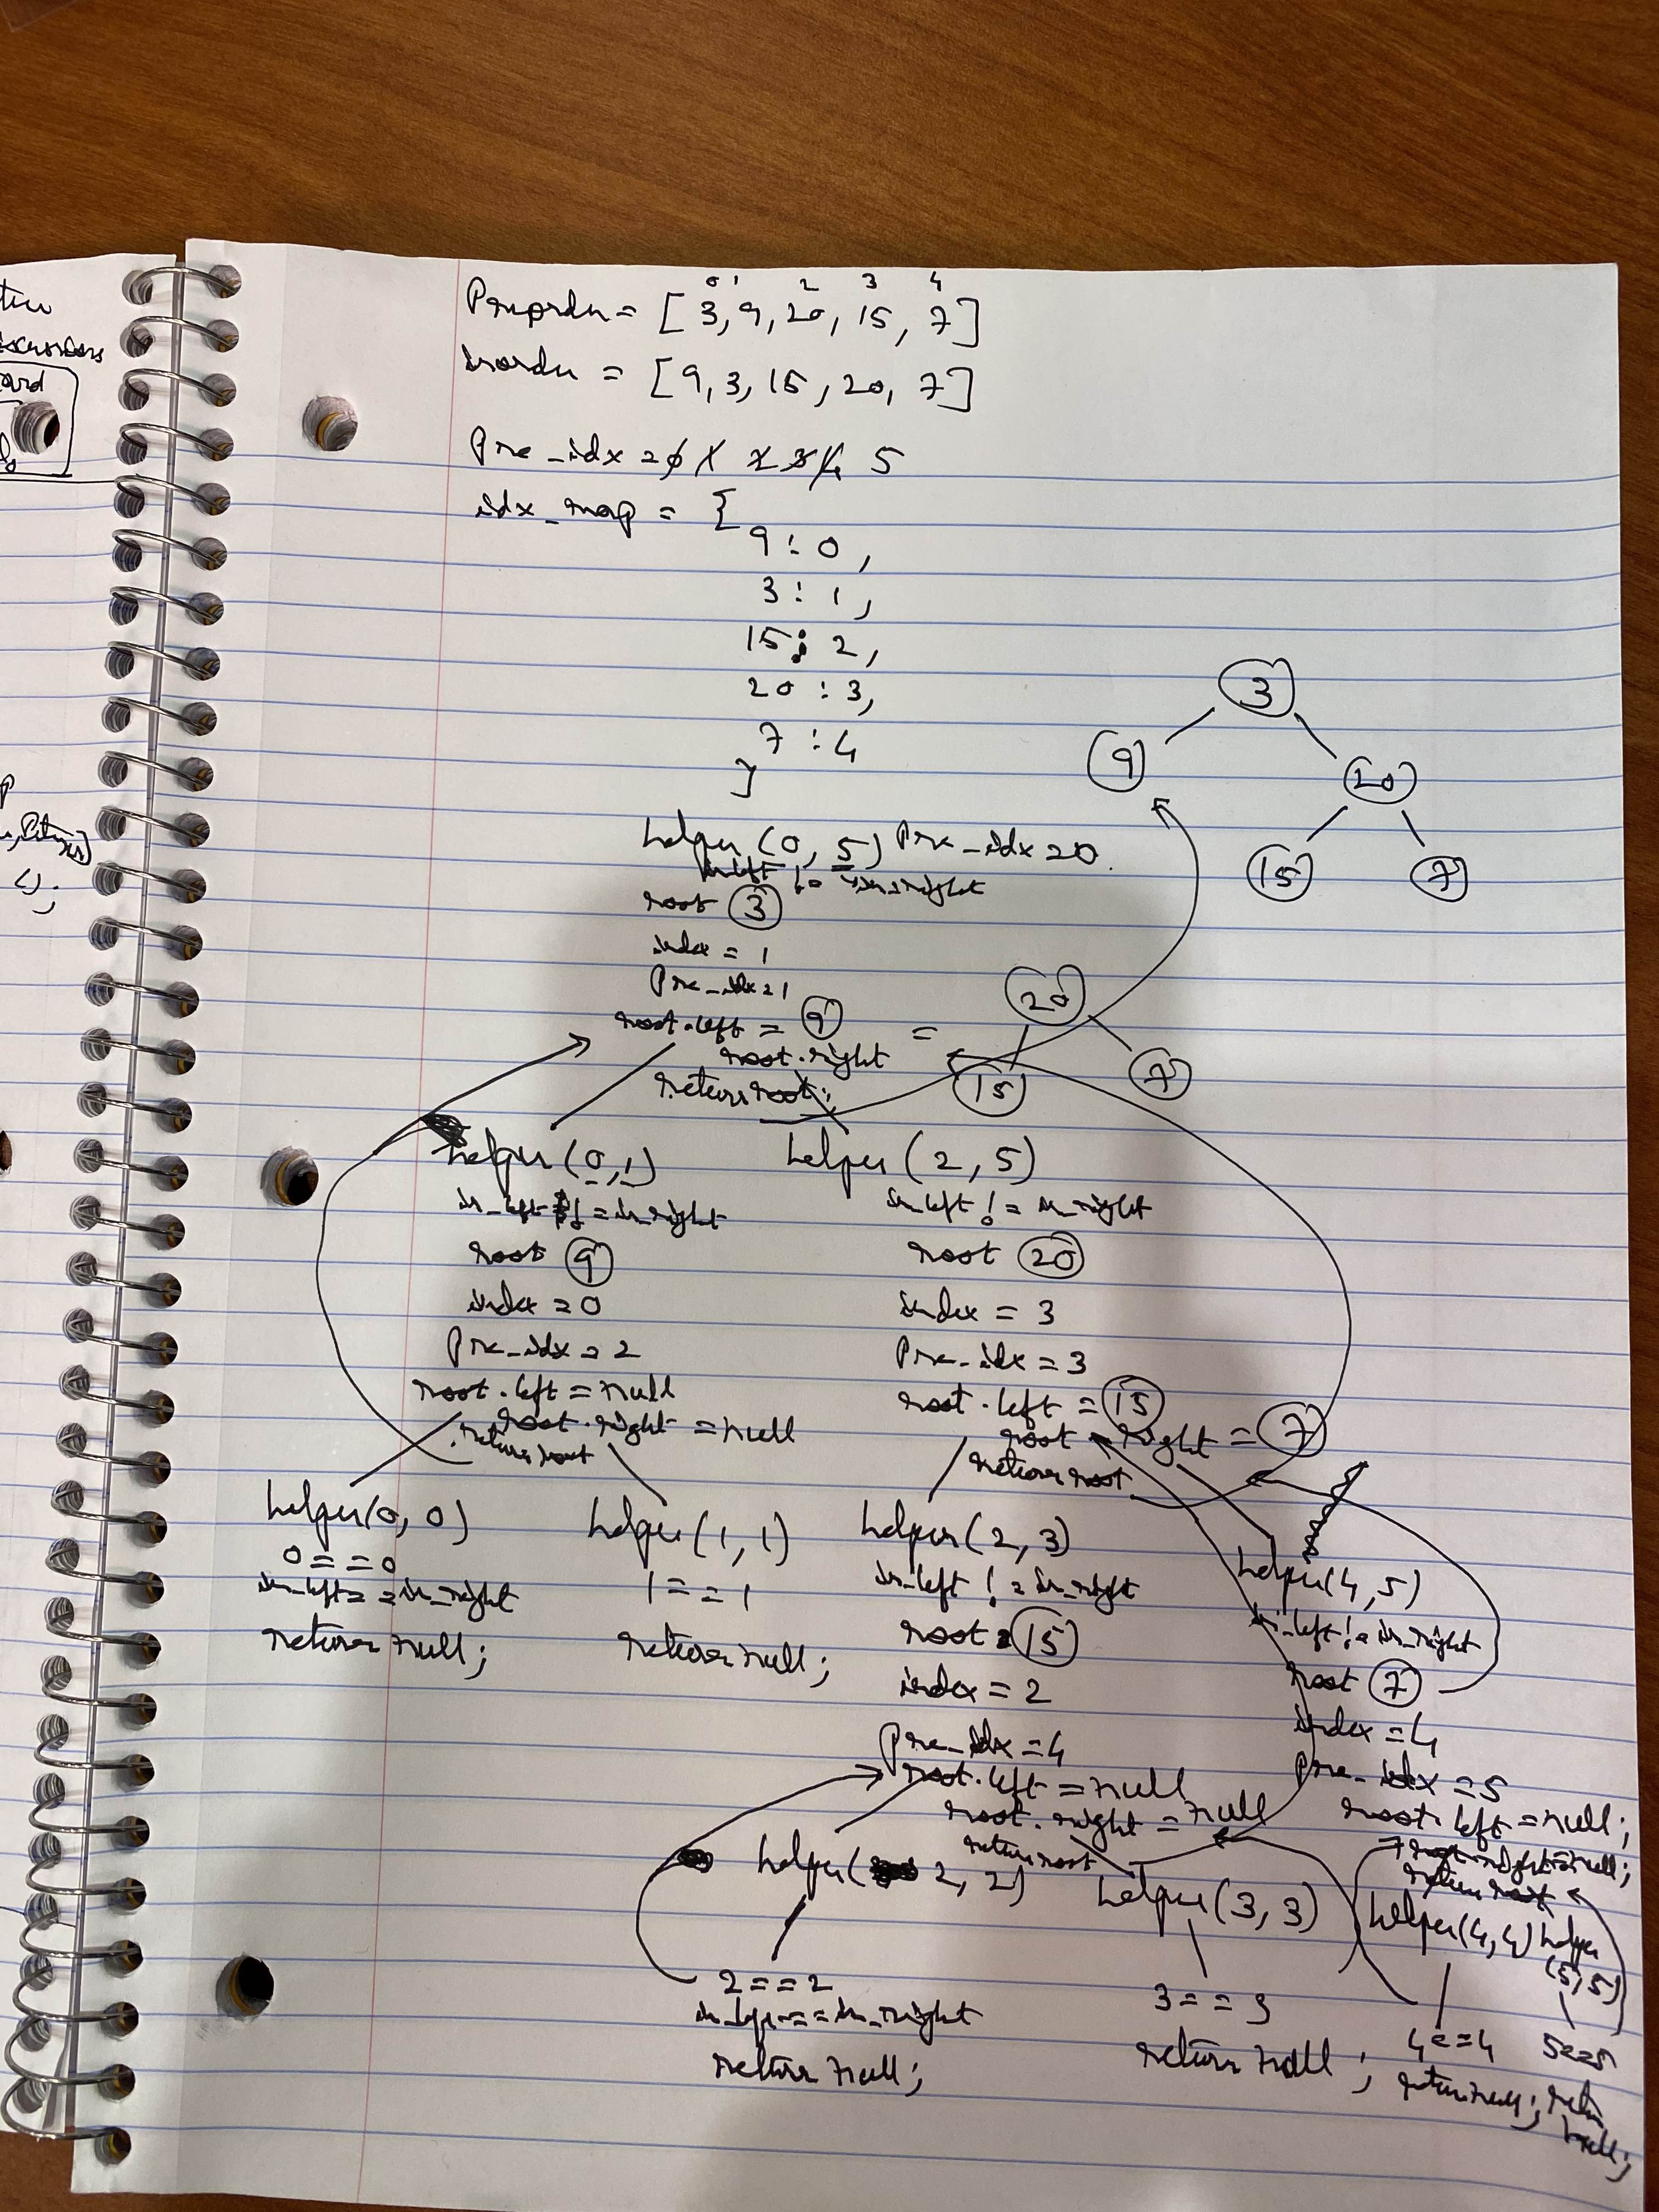 0 1 2 3 4
Preorder = [3, 9, 20, 15, 7]
inorder = [9, 3, 15, 20, 7]
Pre_idx = 0 1 2 3 4 5
idx_map = {
9 : 0,
3 : 1,
15 : 2,
20 : 3,
7 : 4
}
3
9 20
15 7
helper (0, 5) Pre_idx = 0.
in_left != in_right
root 3
index = 1
Pre_idx = 1
root.left = 9
root.right = 20
15 7
return root;
helper (0, 1)
in_left != in_right
root 9
index = 0
Pre_idx = 2
root.left = null
root.right = null
return root
helper (2, 5)
in_left != in_right
root 20
index = 3
Pre_idx = 3
root.left = 15
root.right = 7
return root
helper(0, 0)
0 == 0
in_left == in_right
return null;
helper (1, 1)
1 == 1
return null;
helper (2, 3)
in_left != in_right
root = 15
index = 2
Pre_idx = 4
root.left = null
root.right = null
return root
helper(4, 5)
in_left != in_right
root 7
index = 4
pre_idx = 5
root.left = null;
root.right = null;
return root
helper( 2, 2)
2 == 2
in_left == in_right
return null;
helper (3, 3)
3 == 3
return null;
helper(4, 4)
4 == 4
return null;
helper
(5, 5)
5 == 5
return
null;